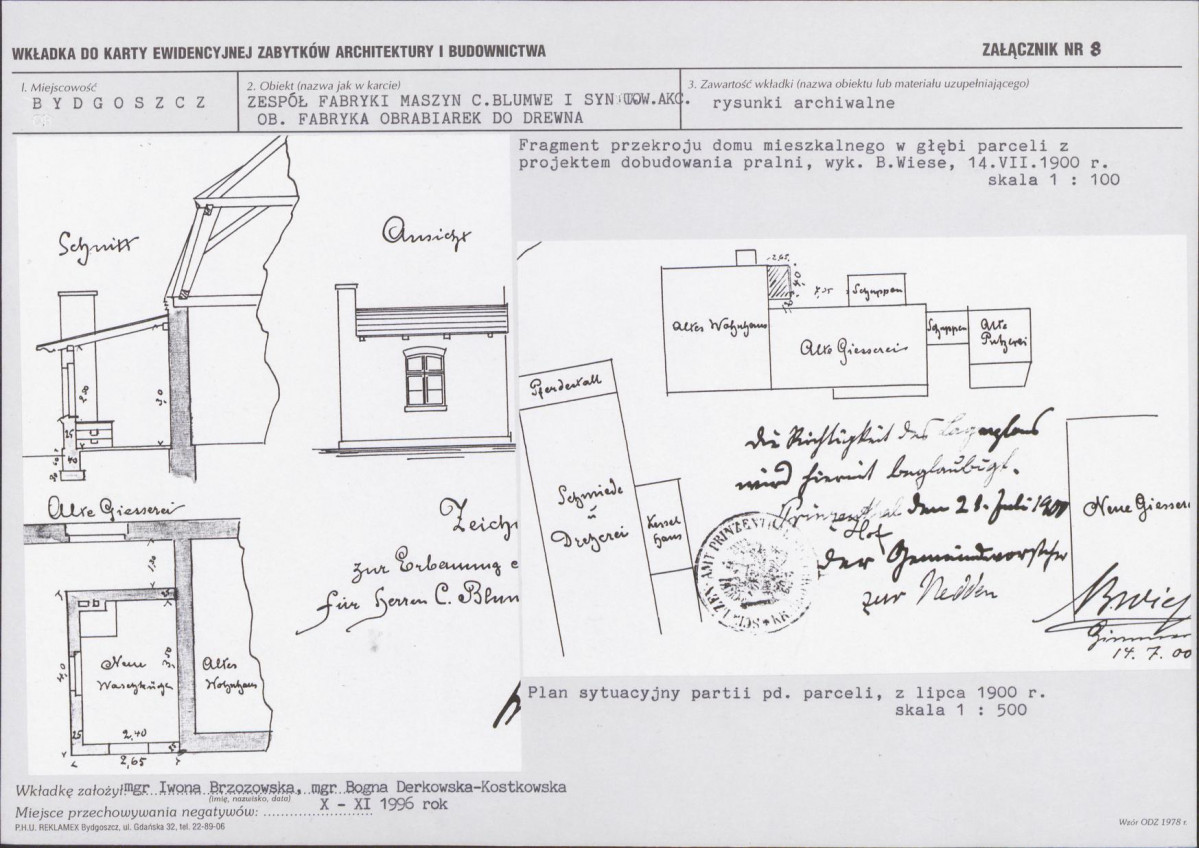 WKŁADKA DO KARTY EWIDENCYJNEJ ZABYTKÓW ARCHITEKTURY I BUDOWNICTWA
ZAŁĄCZNIK NR 8
1. Miejscowość
BYDGOSZCZ
2. Obiekt (nazwa jak w karcie)
ZESPÓŁ FABRYKI MASZYN C.BLUMWE I SYN TOW.AKC.
OB. FABRYKA OBRABIAREK DO DREWNA
3. Zawartość wkładki (nazwa obiektu lub materiału uzupełniającego)
rysunki archiwalne
Fragment przekroju domu mieszkalnego w głębi parceli z
projektem dobudowania pralni, wyk. B.Wiese, 14.VII.1900 r.
skala 1 : 100
Schnitt
Ansicht
Alte Giesserei
Neue
Waschküche
Altes
Wohnhaus
4,0
3,50
25
2,40
2,65
Zeichn
zur Erbauung e
für Herren C. Blum
2,65
Altes Wohnhaus
Schuppen
Alte Giesserei
Schuppen
Alte
Putzerei
Pferdestall
Schmiede
u
Dreherei
Kessel
haus
Neue Giesserei
Die Richtigkeit des Lageplans
wird hiermit beglaubigt.
Prinzenthal den 21. Juli 1900
Der Gemeindevorsteher
zur Nedden
B. Wiese
14. 7. 00
Plan sytuacyjny partii pd. parceli, z lipca 1900 r.
skala 1 : 500
Wkładkę założył: mgr Iwona Brzozowska, mgr Bogna Derkowska-Kostkowska
(imię, nazwisko, data)
X - XI 1996 rok
Miejsce przechowywania negatywów:
P.H.U. REKLAMEX Bydgoszcz, ul. Gdańska 32, tel. 22-89-06
Wzór ODZ 1978 r.